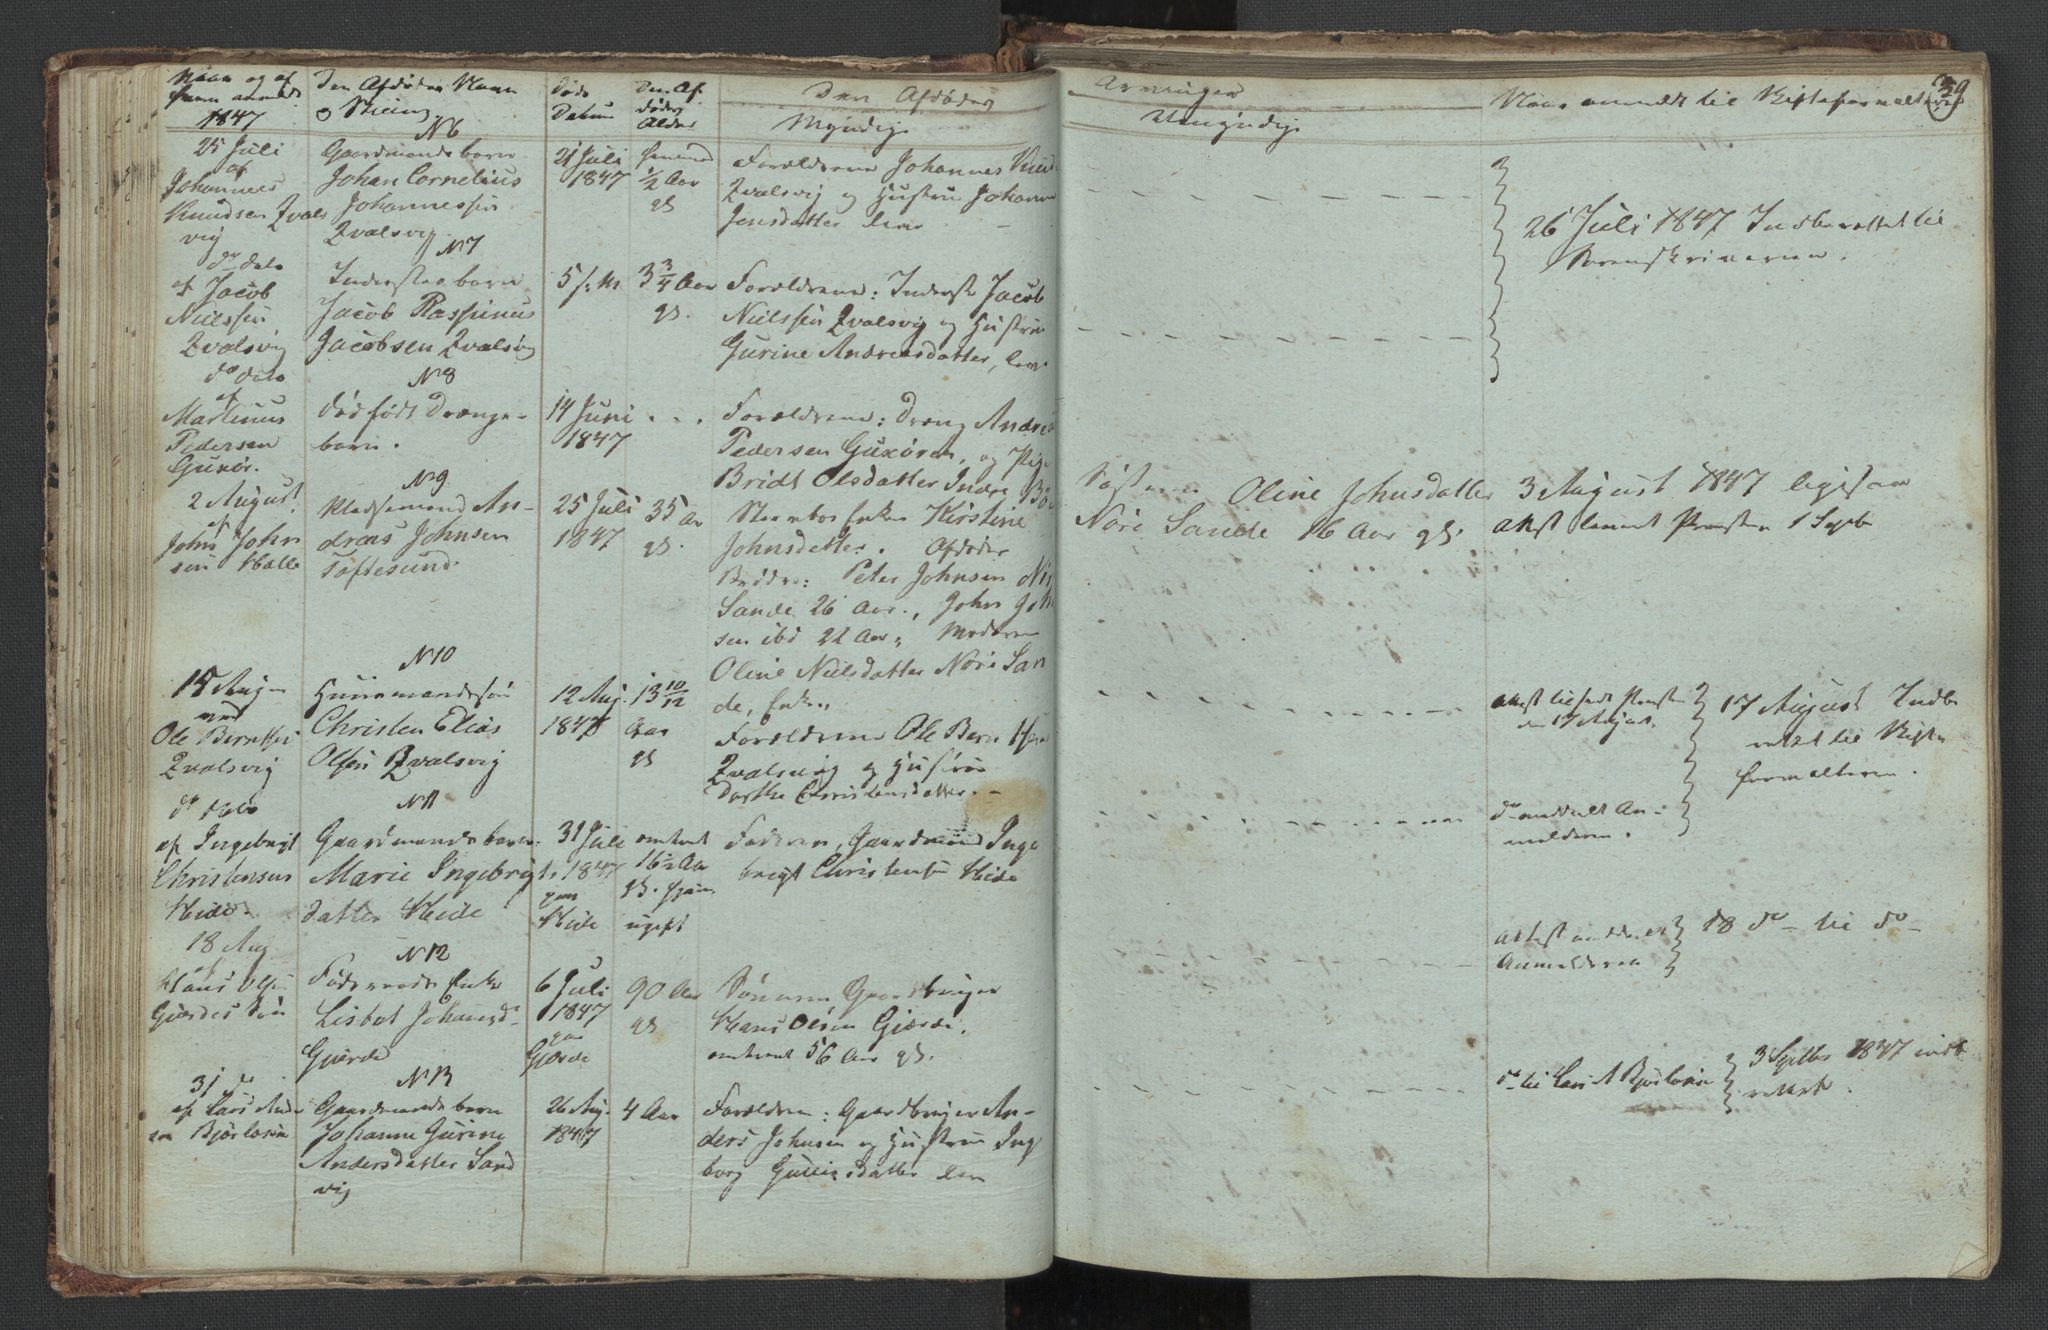 Naar og af
hvem anmeldt
1847
Den Afdødes Navn
og Stilling
Døds
Datum
Den Af
dødes
Alder
Den Afdødes
Myndige
Arvinger
Umyndige
Naar anmeldt til Skifteforvalteren
39
25 Juli
af
Johannes
Knudsen Qvals
vig
N 6
Gaardmands barn
Johan Cornelius
Johannessen
Qvalsvig
21 Juli
1847
½ Aar
gl.
Forældrene Johannes Knud
Qvalsvig og Hustru Johanne
Jensdatter
26 Juli 1847 Indberettet til
Sorenskriveren.
do dato
af Jacob
Nielssen
Qvalsvig
N 7
Inderstes barn
Jacob Rasmus
Jacobsen Qvalsvig
5 s. M.
3 3/4 Aar
gl.
Forældrene: Inderst Jacob
Nielssen Qvalsvig og Hustru
Gurine Andreasdatter,
do dato
af
Martinus
Pedersen
Guxør.
N 8
dødfødt Drenge-
barn.
14 Juni
1847
Forældrene: Dreng Andreas
Pedersen Guxøren, og Pige
Bridt Olsdatter Indre Bø
2 August
af
John John
sen Halle
N 9
Pladsemand An-
dreas Johnsen
Toftesund.
25 Juli
1847
35 Aar
gl.
Stervbos Enke Kirstine
Johnsdatter. Afdødes
Brødre: Peter Johnsen
Sande 26 Aar., John John
sen ibd 22 Aar, Moderen
Oline Nielsdatter Nore San
de, Enke.
Søsteren Oline Johnsdatter
Nore Sande 16 Aar gl.
3 August 1847 ligesaa
Attest leveret Præsten 1 Septb
15 Aug
ved
Ole Berntsen
Qvalsvig
N 10
Huusmandssøn
Christen Elias
Olsen Qvalsvig
12 Aug.
1847
13 10/12
Aar
gl
Forældrene Ole Bern
Qvalsvig og Hustrue
Dorthe Christensdatter.
Attest tilsendt Præsten
den 17 August.
17 August Indbe
rettet til Skifte
forvalteren.
do dato
af Ingebrigt
Christensen
Heide
N 11
Gaardmands barn
Marie Ingebrigts
datter Heide
31 Juli
1847
paa
Heide
omtrent
16½ Aar
gl.
ugift
Faderen, Gaardmand Inge
brigt Christensen Heide
do meddeelt An-
melderen.
18 Aug
af
Hans Olsen
Gjerdes Søn
N 12
Føderaads Enke
Lisbet Johansd
Gjerde
6 Juli
1847
paa
Gjerde
90 Aar
gl
Sønnen Gaardbruger
Hans Olsen Gjerde,
omtrent 56 Aar gl.
Attest meddeelt
Anmelderen
18 do til do
31 do
af Lars Ander
sen Bjørlosen
N 13
Gaardmands barn
Johanne Gurine
Andersdatter Sand
vig
26 Aug.
1847
4 Aar
Forældrene: Gaardbruger An-
ders Johnsen og Hustrue Inge
borg Gulliksdatter
do til Lars A Bjørlosen
3 Septbr 1847 indbe
rettet.